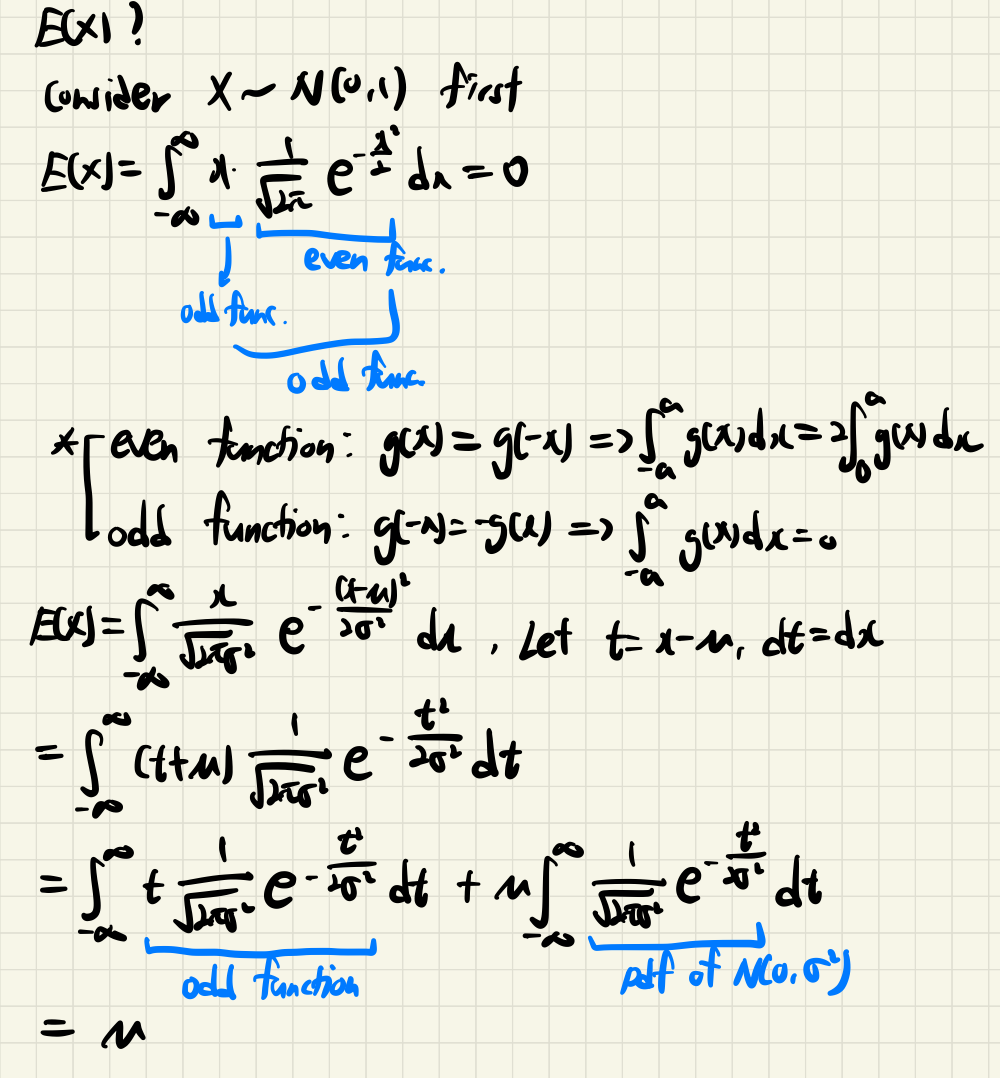 E(X)?
consider X ~ N(0,1) first
E(X) = ∫_{-∞}^{∞} x · \frac{1}{\sqrt{2π}} e^{-\frac{x²}{2}} dx = 0
even func.
odd func.
odd func.
* even function: g(x) = g(-x) => ∫_{-a}^{a} g(x)dx = 2∫_{0}^{a} g(x)dx
odd function: g(-x) = -g(x) => ∫_{-a}^{a} g(x)dx = 0
E(X) = ∫_{-∞}^{∞} \frac{x}{\sqrt{2πσ²}} e^{-\frac{(x-μ)²}{2σ²}} dx, Let t = x-μ, dt = dx
= ∫_{-∞}^{∞} (t+μ) \frac{1}{\sqrt{2πσ²}} e^{-\frac{t²}{2σ²}} dt
= ∫_{-∞}^{∞} t \frac{1}{\sqrt{2πσ²}} e^{-\frac{t²}{2σ²}} dt + μ∫_{-∞}^{∞} \frac{1}{\sqrt{2πσ²}} e^{-\frac{t²}{2σ²}} dt
odd function pdf of N(0,σ²)
= μ